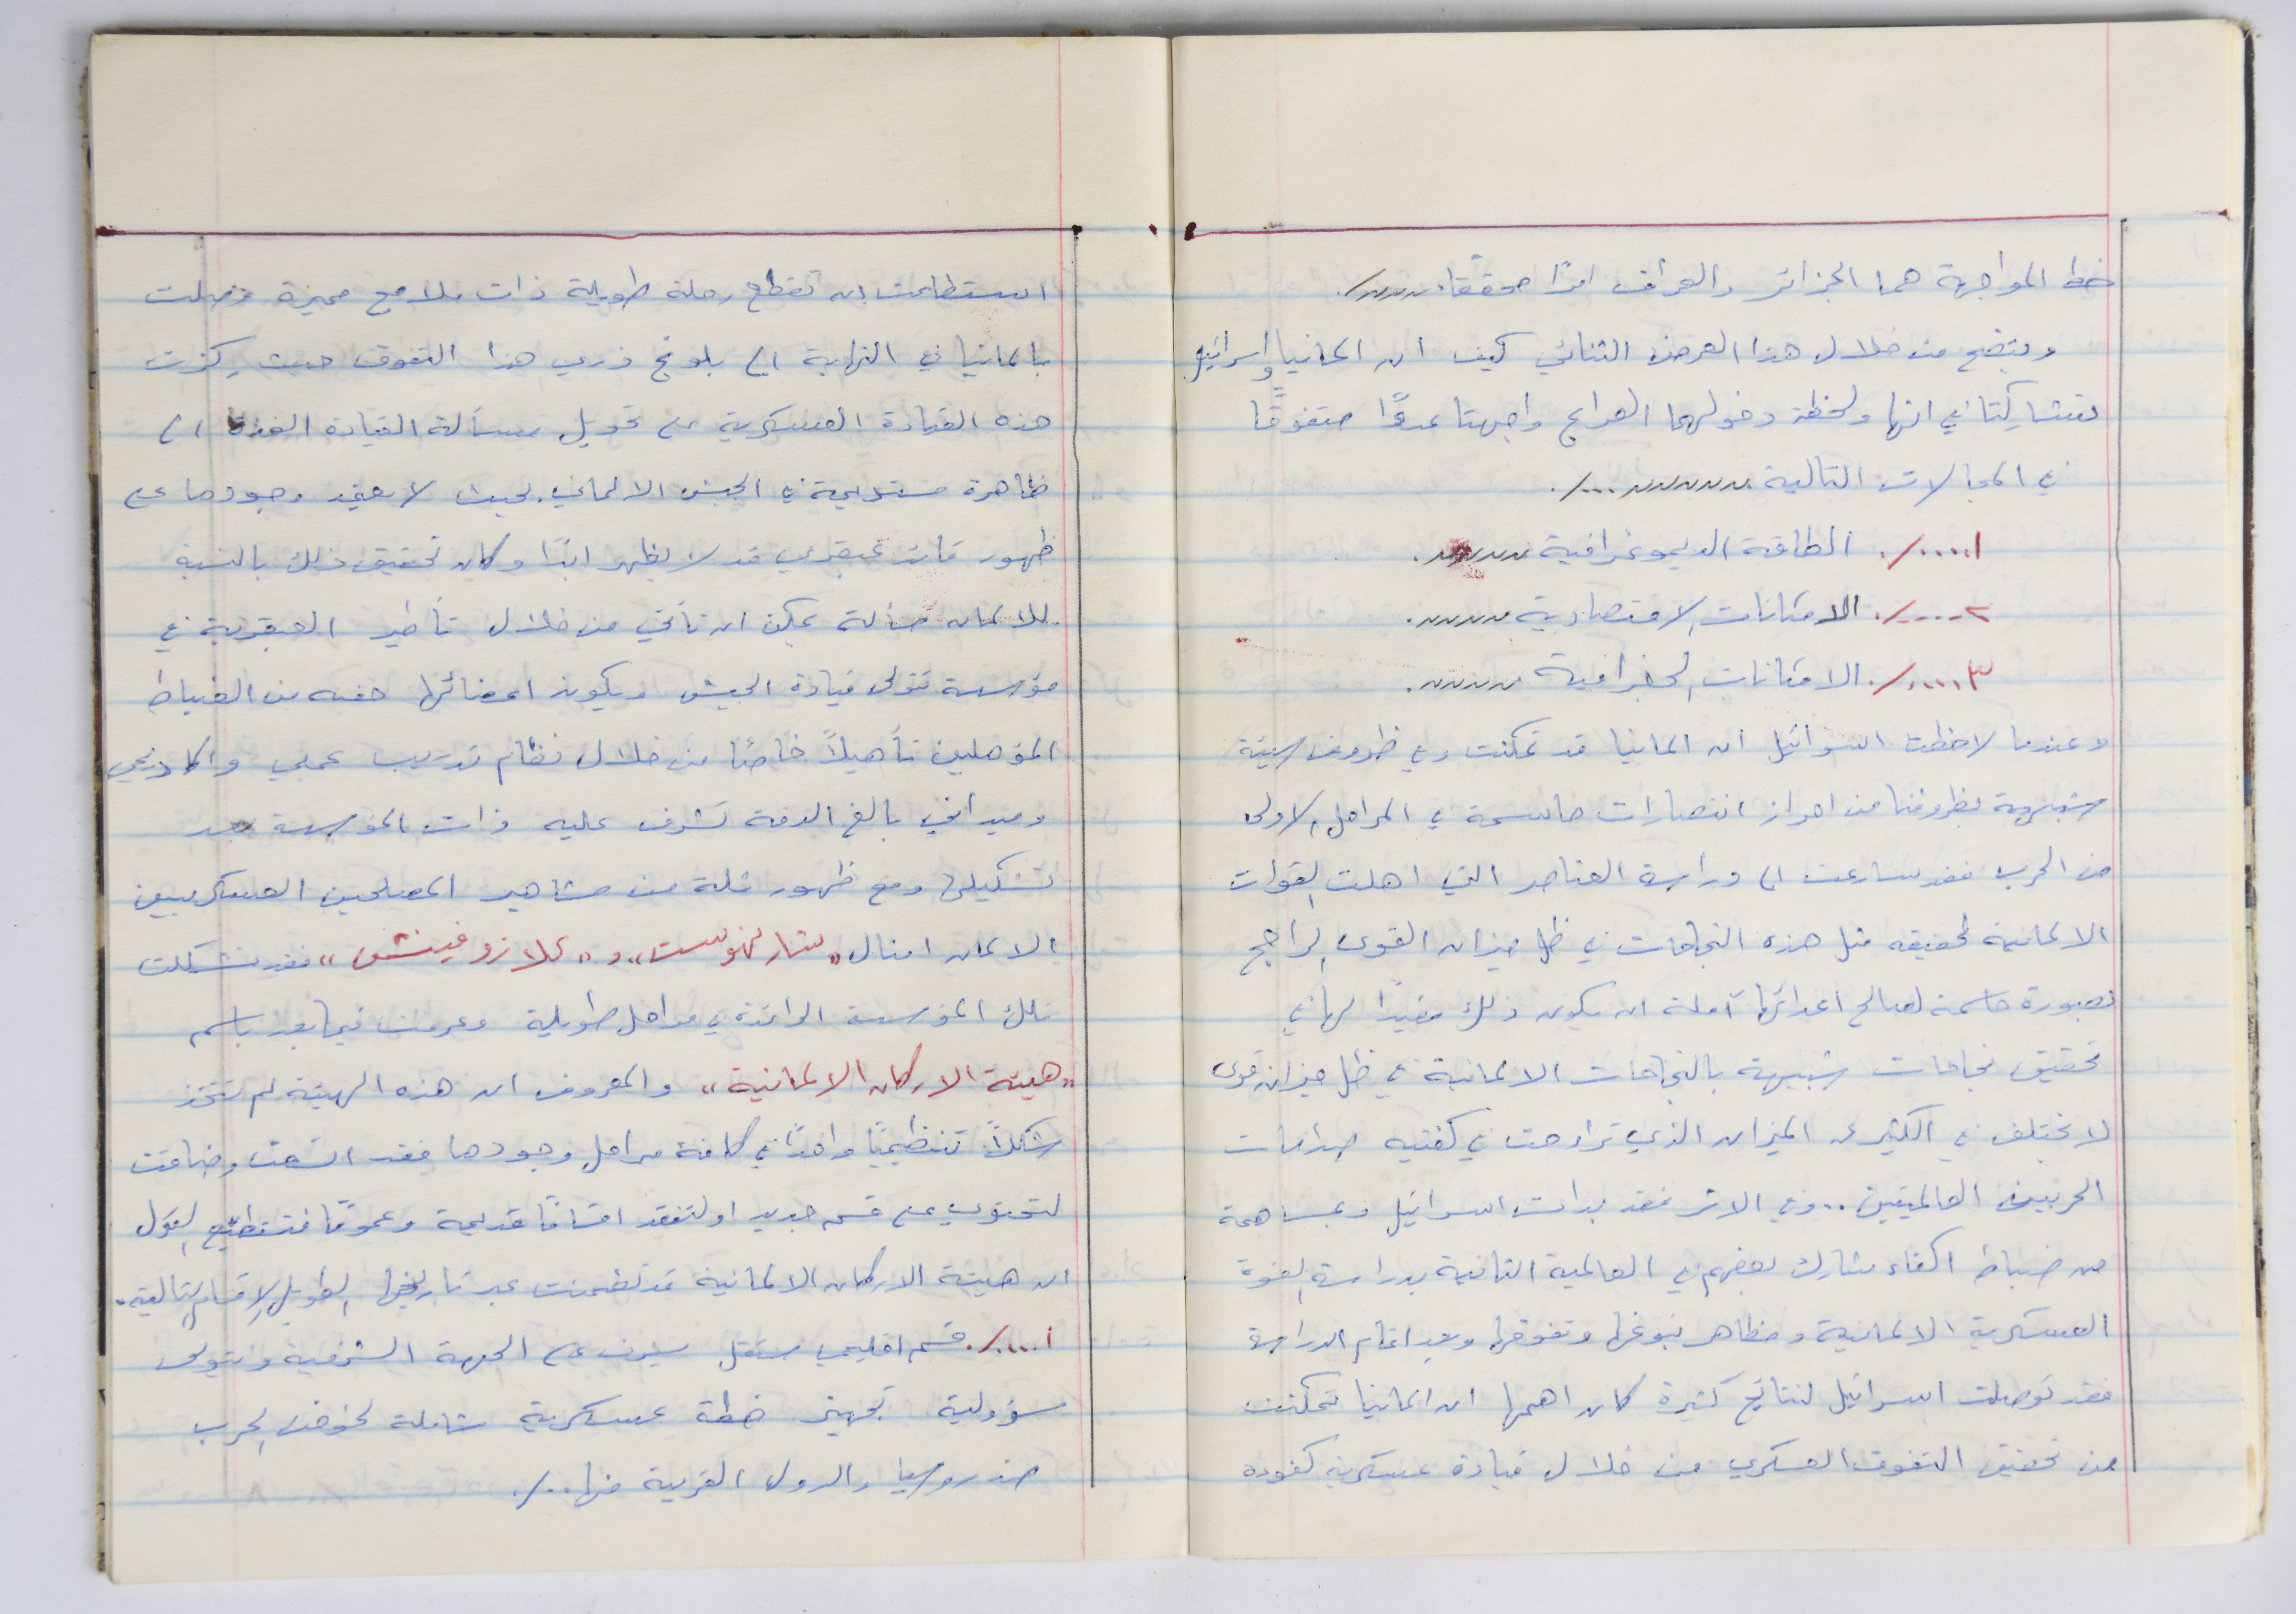 خط المواجهة هما الجزائر والعراق امرًا محققًا.
ويتضح من خلال هذا العرض الثنائي كيف ان المانيا واسرائيل
تشاركتا في انها ولحظة دخولهما الصراع واجهتا عدوًا متفوقًا
في المجالات التالية ..../.
١...../. الطاقة الديموغرافية .
٢...../. الامكانات الاقتصادية .
٣...../. الامكانات الجغرافية .
وعندما لاحظت اسرائيل ان المانيا قد تمكنت وفي ظروف سيئة
شبيهة بظروفنا من احراز انتصارات حاسمة في المراحل الاولى
من الحرب فقد سارعت الى دراسة العناصر التي اهلت القوات
الالمانية لتحقيق مثل هذه النجاحات في ظل ميزان القوى الراجح
بصورة حاسمة لصالح أعدائها آملة ان يكون ذلك مفيدًا لها في
تحقيق نجاحات شبيهة بالنجاحات الالمانية في ظل ميزان قوى
لا يختلف في الكثير عن الميزان الذي تراوحت في كفتيه صدامات
الحربين العالميتين .. وفي الاثر فقد بدات اسرائيل وبمساهمة
من ضباط اكفاء شارك بعضهم في العالمية الثانية بدراسة القوة
العسكرية الالمانية ومظاهر نبوغها وتفوقها وبعد اتمام الدراسة
فقد توصلت اسرائيل لنتائج كثيرة كان اهمها ان المانيا تمكنت
من تحقيق التفوق العسكري من خلال قيادة عسكرية كفوءة
استطاعت ان تقطع رحلة طويلة ذات ملامح مميزة وصلت
بالمانيا في النهاية الى بلوغ ذرى هذا التفوق حيث ركزت
هذه القيادة العسكرية على تحويل مسألة القيادة الفذة الى
ظاهرة مستديمة في الجيش الالماني بحيث لا يعتمد وجودها على
ظهور قائد عبقري قد لا يظهر ابدًا وكان تحقيق ذلك بالنسبة
للالمان مسألة يمكن ان تأتي من خلال تأطير العبقرية في
مؤسسة تتولى قيادة الجيش ويكون اعضائها حفنه من الضباط
المؤهلين تأهيلاً خاصًا من خلال نظام تدريب عملي واكاديمي
وميداني بالغ الدقة تشرف عليه ذات المؤسسة بعد
تشكيلها ومع ظهور ثلة من مشاهير المصلحين العسكريين
الالمان امثال «شارنهوست» و«كلازوفيتش» فقد تشكلت
تلك المؤسسة الرائدة في مراحل طويلة وعرفت فيما بعد باسم
«هيئة الاركان الالمانية» والمعروف ان هذه الهيئة لم تتخذ
شكلاً تنظيميًا واحدًا في كافة مراحل وجودها فقد اتسعت وضاقت
لتحتوي على قسم جديد او لتفقد اقسامًا قديمة وعمومًا فنستطيع القول
ان هيئة الاركان الالمانية قد تضمنت عبر تاريخها الطويل الاقسام التالية.
أ...../. قسم اقليمي مستقل يشرف على الجبهة الشرقية ويتولى
مسؤولية تجهيز خطة عسكرية شاملة لخوض الحرب
ضد روسيا والدول القريبة منها ../.